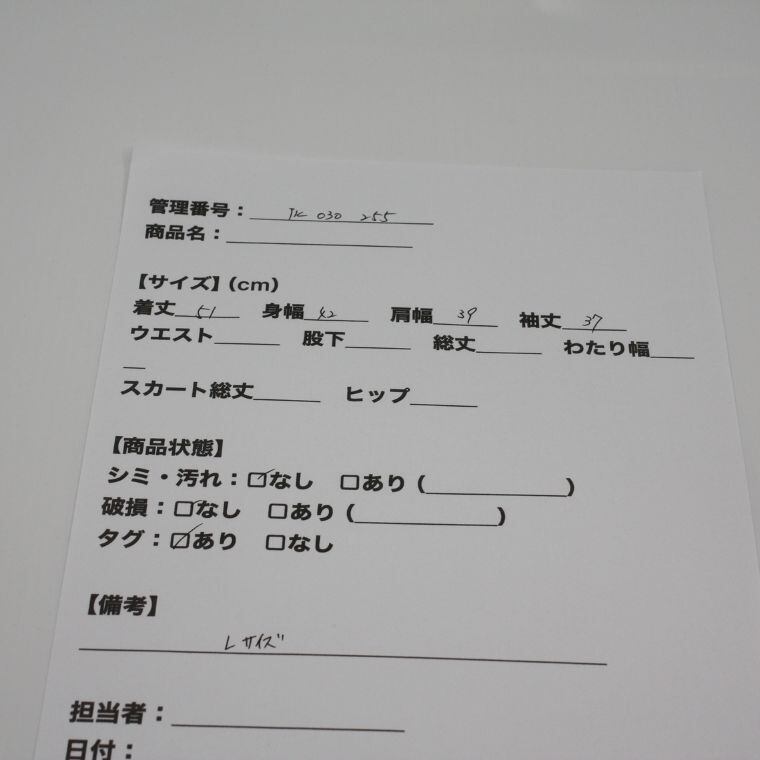 管理番号：TK 030 255
商品名：
【サイズ】(cm)
着丈 51 身幅 42 肩幅 39 袖丈 37
ウエスト 股下 総丈 わたり幅
スカート総丈 ヒップ
【商品状態】
シミ・汚れ：☑なし □あり（ ）
破損：☑なし □あり（ ）
タグ：☑あり □なし
【備考】
Lサイズ
担当者：
日付：